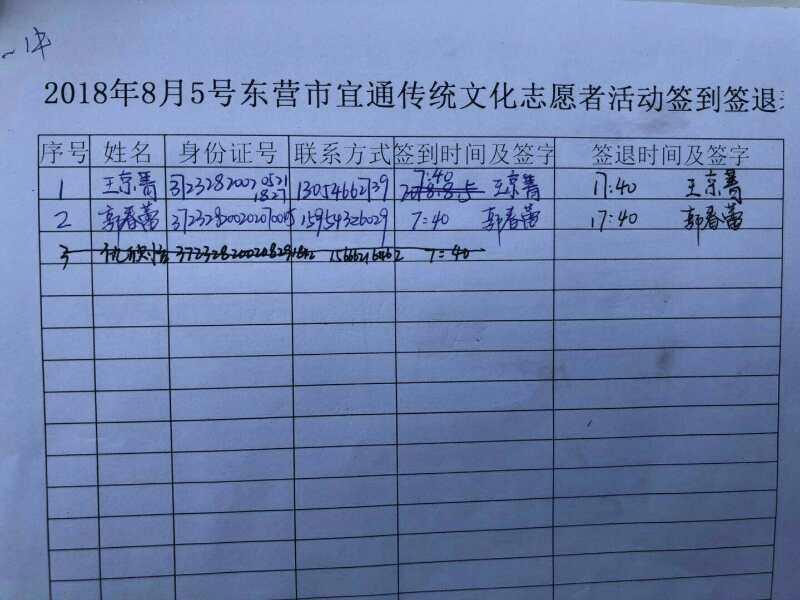 ~1中
2018年8月5号东营市宜通传统文化志愿者活动签到签退
序号 姓名 身份证号 联系方式 签到时间及签字 签退时间及签字
1 王京箐 372328200205211827 13054662739 7:40 2018.8.5 王京箐 17:40 王京箐
2 郭春蕾 15954326029 7:40 郭春蕾 17:40 郭春蕾
3 7:40